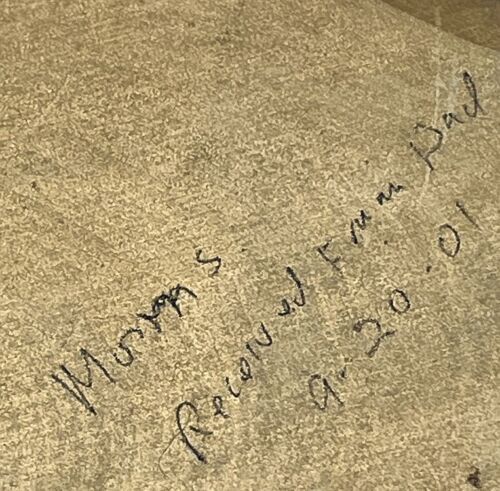 Moms.
Received From Dad
9-20-01